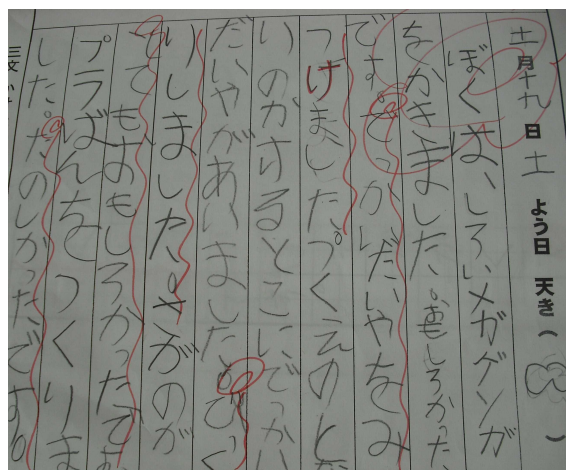 土月十九日土よう日 天き( )
ぼくは、しろいメガゲンガ
をかきました。おもしろかった
です。でっかいだいやをみ
つけました。つくえのした
いのかけるとこに、でっかい
だいやがあいました。びっく
りしました。メガのが
とてもおもしろかったです
プラばんをつくりま
した。たのしかったです。